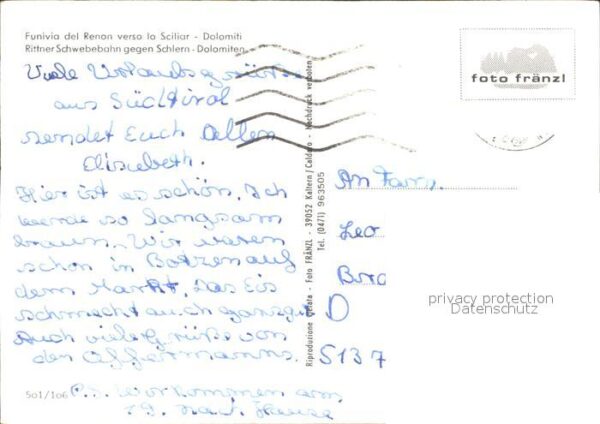 Funivia del Renon verso lo Sciliar - Dolomiti
Rittner Schwebebahn gegen Schlern - Dolomiten
Viele Urlaubsgrüße
aus Südtirol
sendet Euch Allen
Elisabeth.
Hier ist es schön. Ich
werde so langsam
braun. Wir waren
schon in Botzen auf
dem Markt. Das Eis
schmeckt auch ganz gut
Auch viele Grüße von
den Offermanns.
P.S. Wir kommen am
19. nach Hause
501/106
Riproduzione vietata - Foto FRÄNZL - 39052 Kaltern/Caldaro - Nachdruck verboten
Tel. (0471) 963505
foto fränzl
An Fam.
Leo
D
5137
privacy protection
Datenschutz